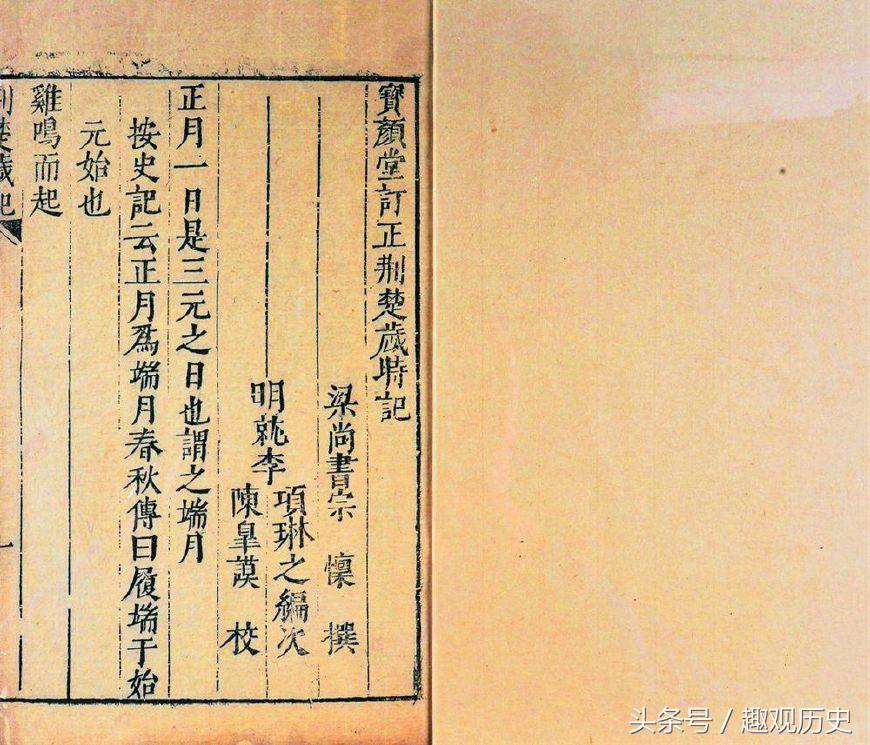 寶顏堂訂正荆楚歲時記
梁尚書宗懍撰
明就李
項琳之編次
陳臯謨校
正月一日是三元之日也謂之端月
按史記云正月爲端月春秋傳曰履端于始
元始也
雞鳴而起
荆楚歲記
一
头条号／趣观历史